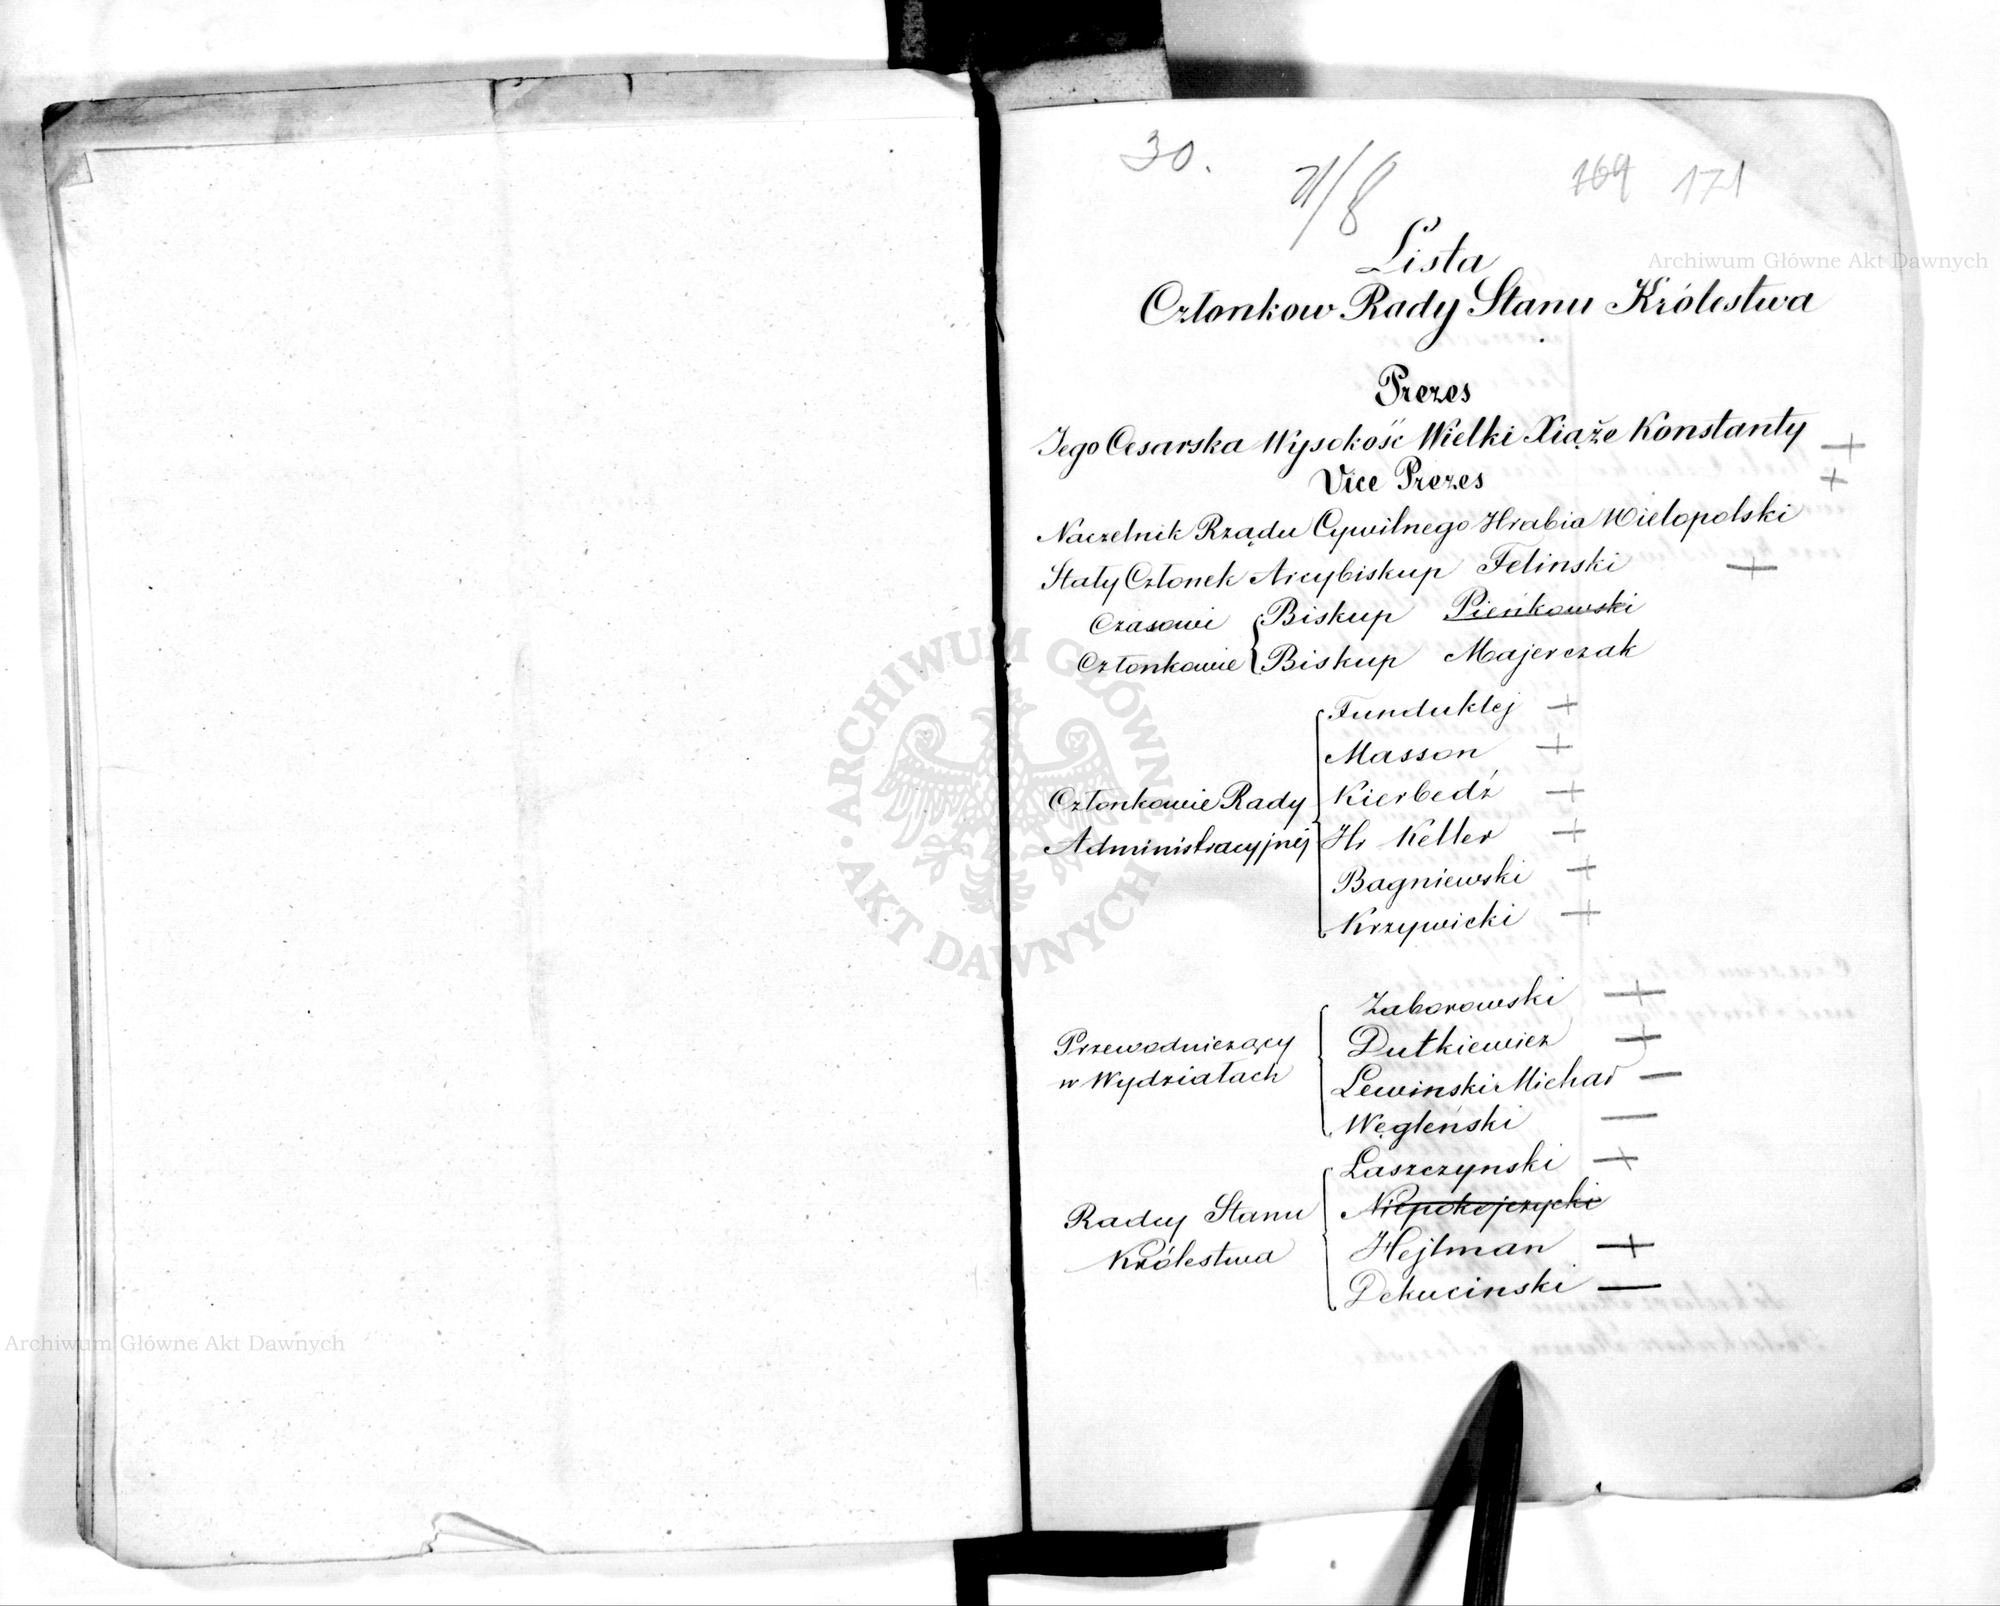 30.
71/8
169 171
Lista
Członkow Rady Stanu Królestwa
Prezes
Jego Cesarska Wysokość Wielki Xiąże Konstanty +
Vice Prezes +
Naczelnik Rządu Cywilnego Hrabia Wielopolski
Stały Członek Arcybiskup Felinski +
Czasowi Biskup Pieńkowski
Członkowie Biskup Majerczak
Funduklej +
Masson +
Członkowie Rady Kierbedź +
Administracyjnéj Hr Keller +
Bagniewski +
Krzywicki +
Zaborowski +
Przewodniczący Dutkiewicz +
w Wydziałach Lewinski Michał —
Węgleński —
Łaszczynski +
Radcy Stanu Niepokojczycki
Królestwa Hejlman +
Dekucinski —
Archiwum Główne Akt Dawnych
Archiwum Główne Akt Dawnych
ARCHIWUM GŁÓWNE AKT DAWNYCH